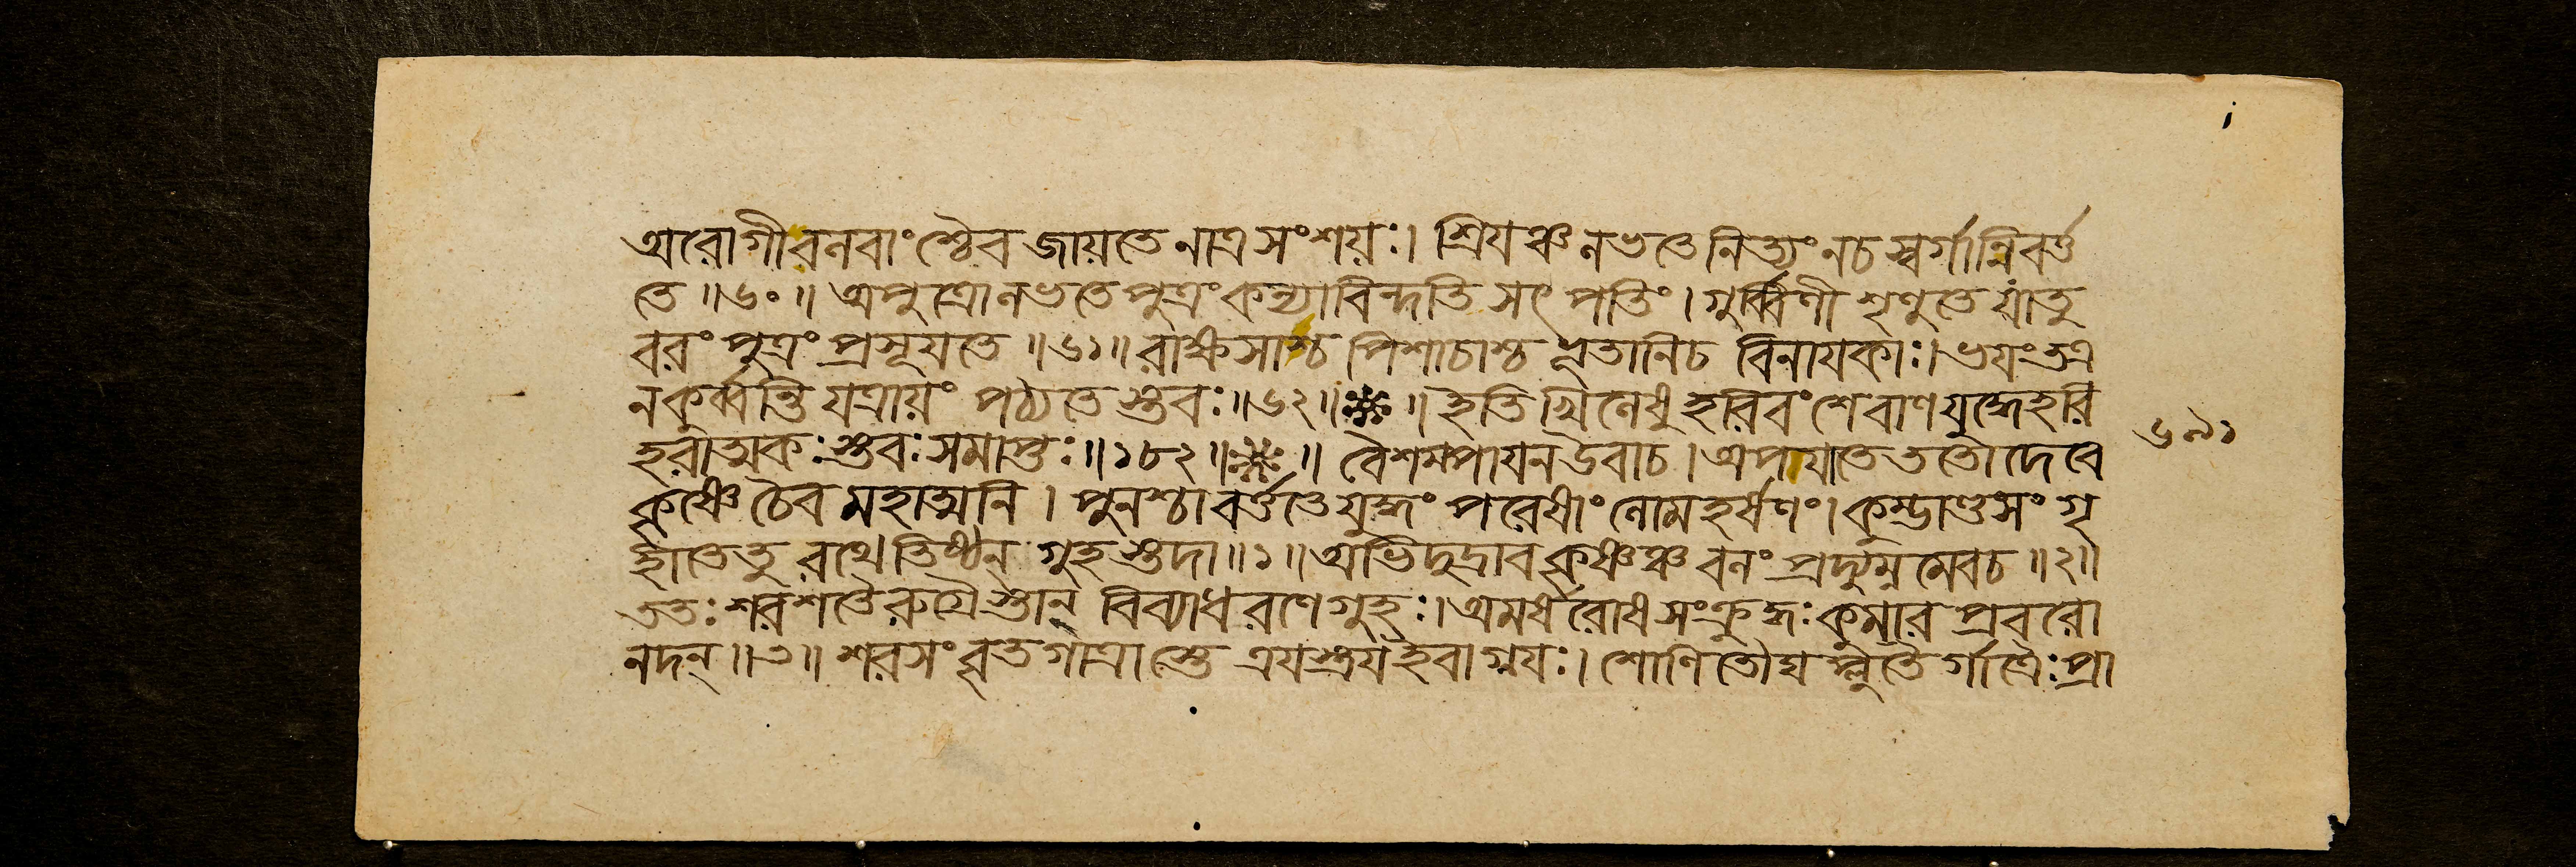 অরোগী বলবাংশ্চৈব জায়তে নাত্র সংশয়ঃ। শ্রিযঞ্চ লভতে নিত্যং নচ স্বর্গান্নিবর্ত্ত
তে॥৬০॥ অপুত্রোলভতে পুত্রং কন্যা বিন্দতি সৎ পতিং। গুর্ব্বিণী শৃণুতে যা তু
বরং পুত্রং প্রসূযতে॥৬১॥ রাক্ষসাশ্চ পিশাচাশ্চ ভূতানিচ বিনাযকাঃ। ভযং তত্র
ন কুর্ব্বন্তি যত্রায়ং পঠ্যতে স্তবঃ॥৬২॥ ইতি খিলেষু হরিবংশে বাণযুদ্ধে হরি
হরাত্মকঃ স্তবঃ সমাপ্তঃ॥১৮২॥ বৈশম্পাযন উবাচ। অপযাতে ততো দেবে
কৃষ্ণে চৈব মহাত্মনি। পুনশ্চাবর্ত্তত যুদ্ধং পরেষাং লোমহর্ষণং। কুম্ভাণ্ডসংগৃ
হীতেতু রথে তিষ্ঠন্ গুহস্তদা॥১॥ অভিদুদ্রাব কৃষ্ণঞ্চ বলং প্রদ্যুম্নমেবচ॥২॥
ততঃ শরশতৈরুগ্রৈস্তান্ বিব্যাধ রণে গুহঃ। অমর্ষরোষসংক্রুদ্ধঃ কুমার প্রবরো
নদন্॥৩॥ শরসংবৃতগাত্রাস্তে ত্রযস্ত্রয ইবাগ্নযঃ। শোণিতৌঘপ্লুতৈর্গাত্রৈঃ প্রা
৬৯১